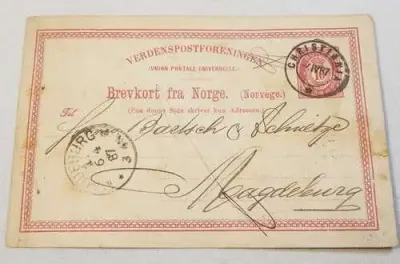 VERDENSPOSTFORENINGEN
(UNION POSTALE UNIVERSELLE.)
Brevkort fra Norge. (Norvege.)
(Paa denne Side skrives kun Adressen.)
CHRISTIANIA
Til
Bartsch & Schnitze
Magdeburg